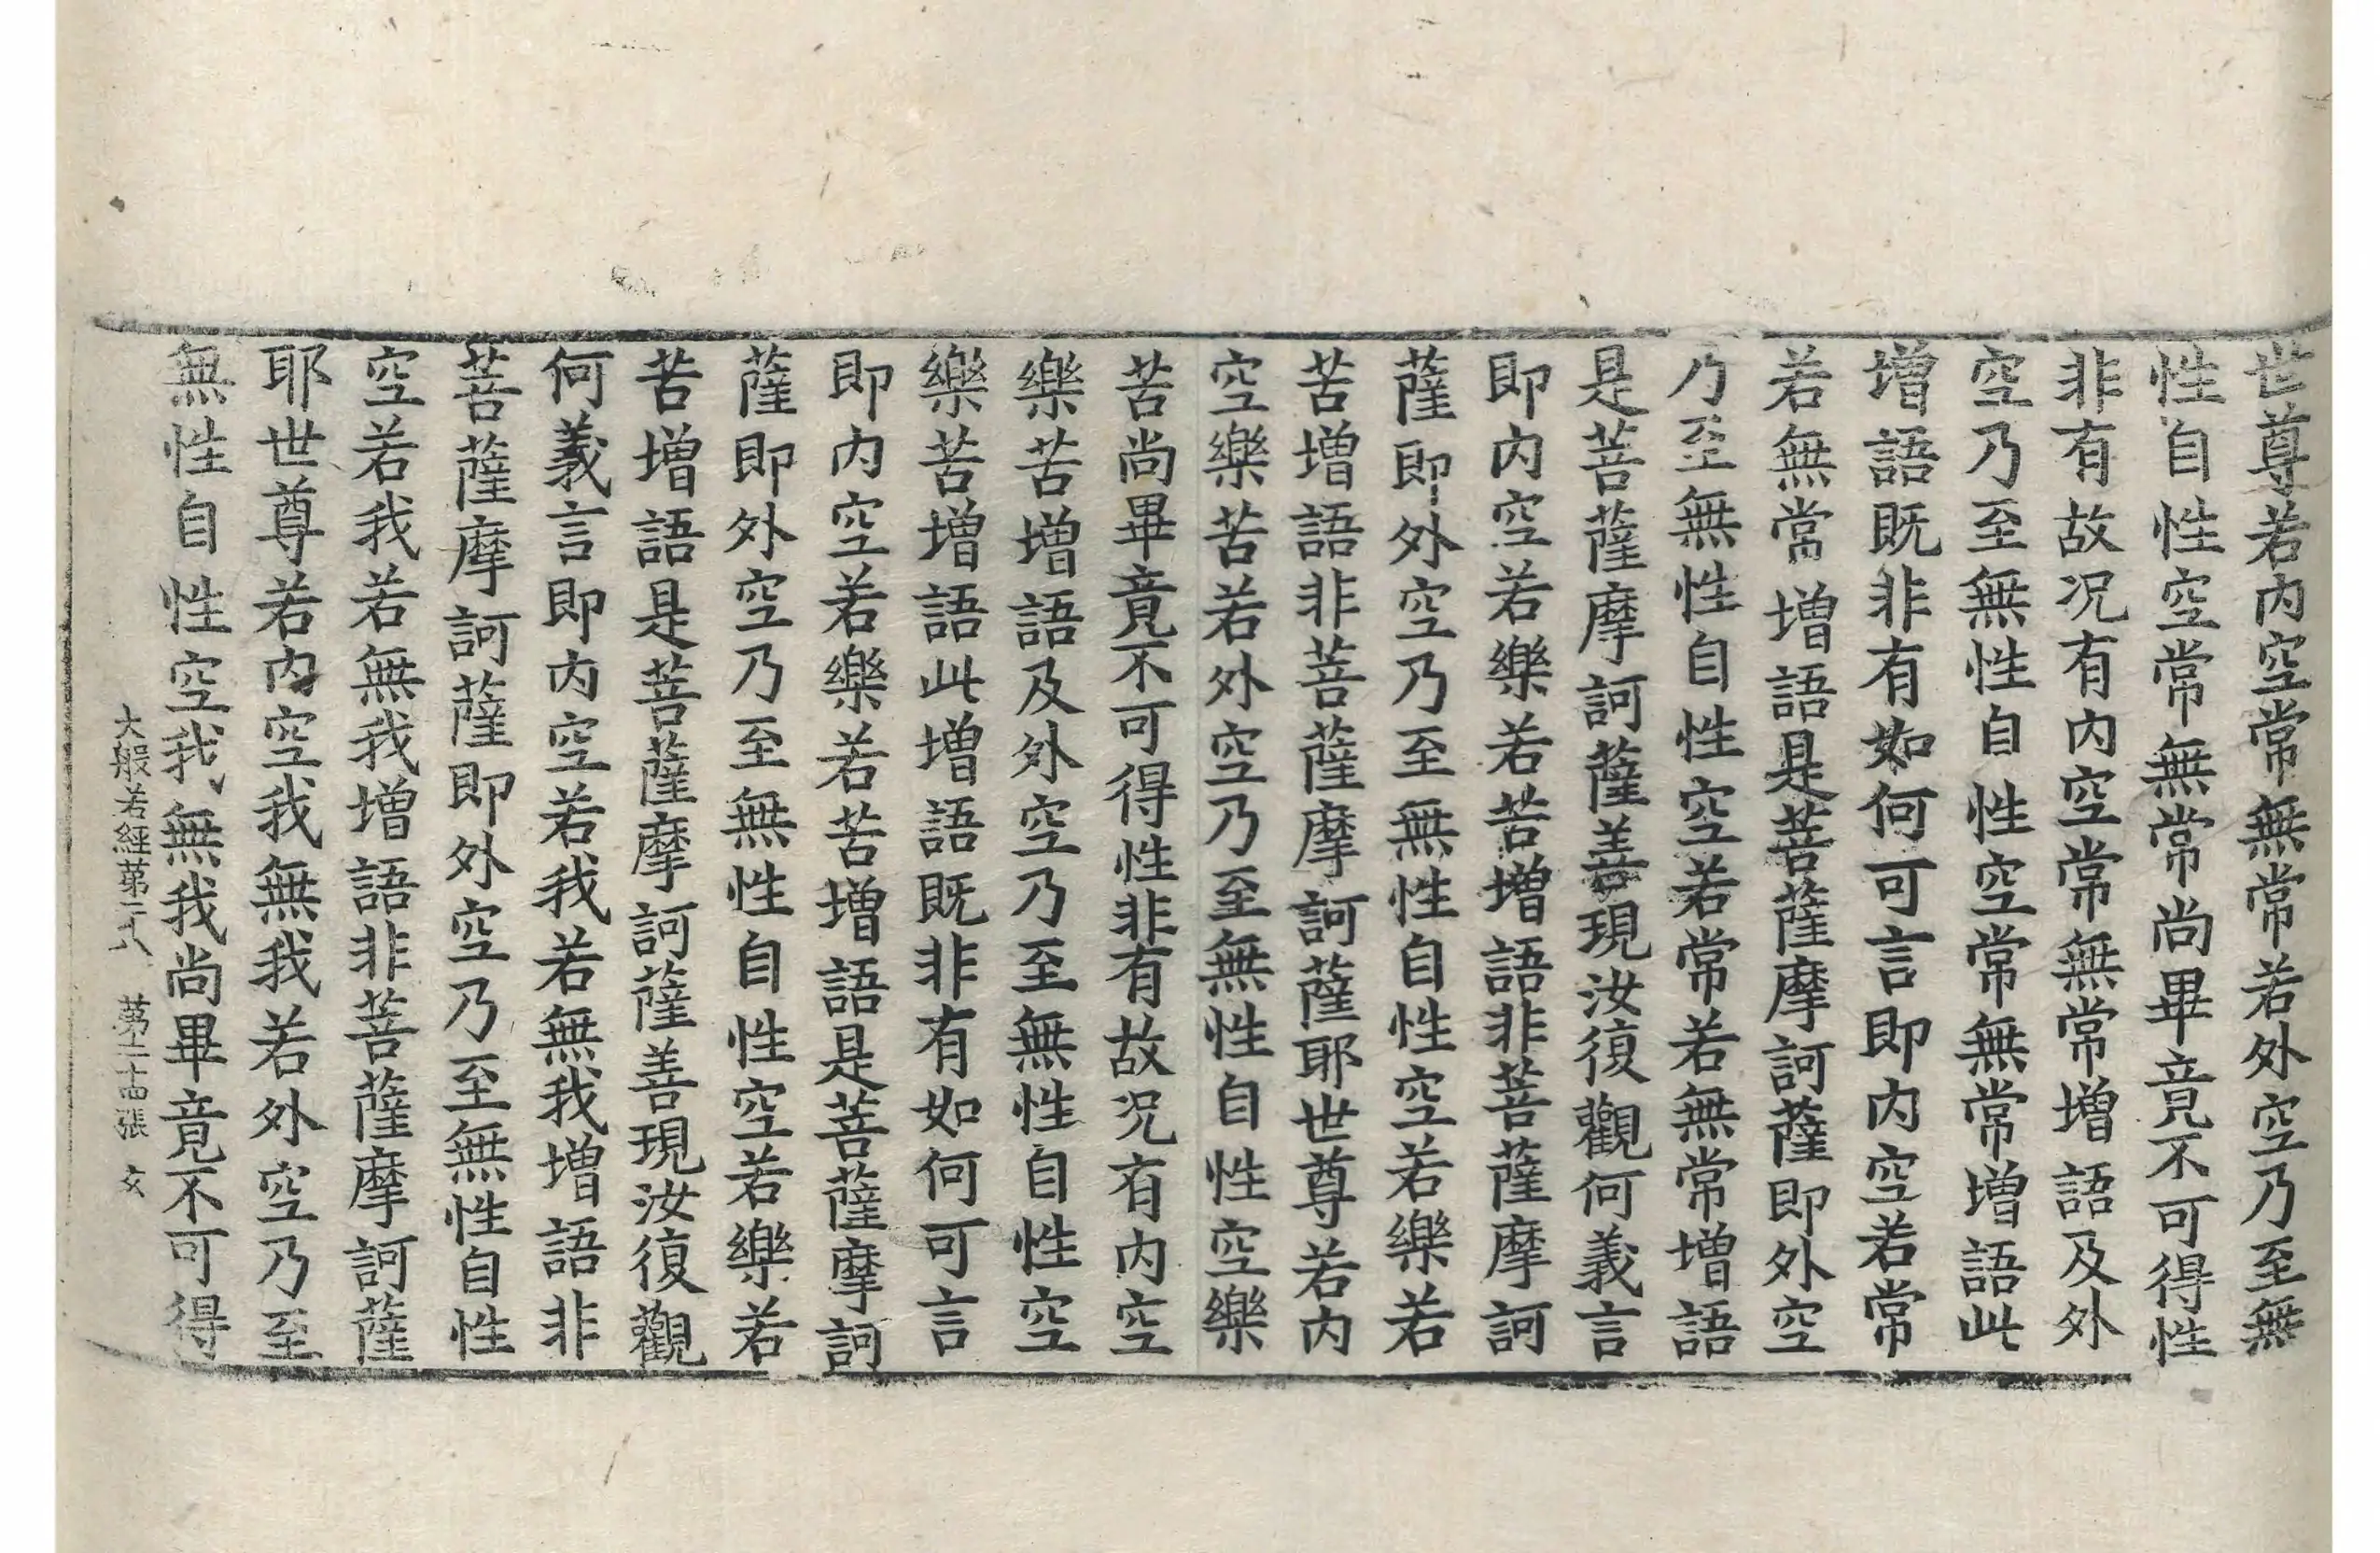 世尊若内空常無常若外空乃至無
性自性空常無常尚畢竟不可得性
非有故况有内空常無常增語及外
空乃至無性自性空常無常增語此
增語既非有如何可言即内空若常
若無常增語是菩薩摩訶薩即外空
乃至無性自性空若常若無常增語
是菩薩摩訶薩善現汝復觀何義言
即内空若樂若苦增語非菩薩摩訶
薩即外空乃至無性自性空若樂若
苦增語非菩薩摩訶薩耶世尊若内
空樂苦若外空乃至無性自性空樂
苦尚畢竟不可得性非有故况有内空
樂苦增語及外空乃至無性自性空
樂苦增語此增語既非有如何可言
即内空若樂若苦增語是菩薩摩訶
薩即外空乃至無性自性空若樂若
苦增語是菩薩摩訶薩善現汝復觀
何義言即内空若我若無我增語非
菩薩摩訶薩即外空乃至無性自性
空若我若無我增語非菩薩摩訶薩
耶世尊若内空我無我若外空乃至
無性自性空我無我尚畢竟不可得
大般若經第二八 第二十四張